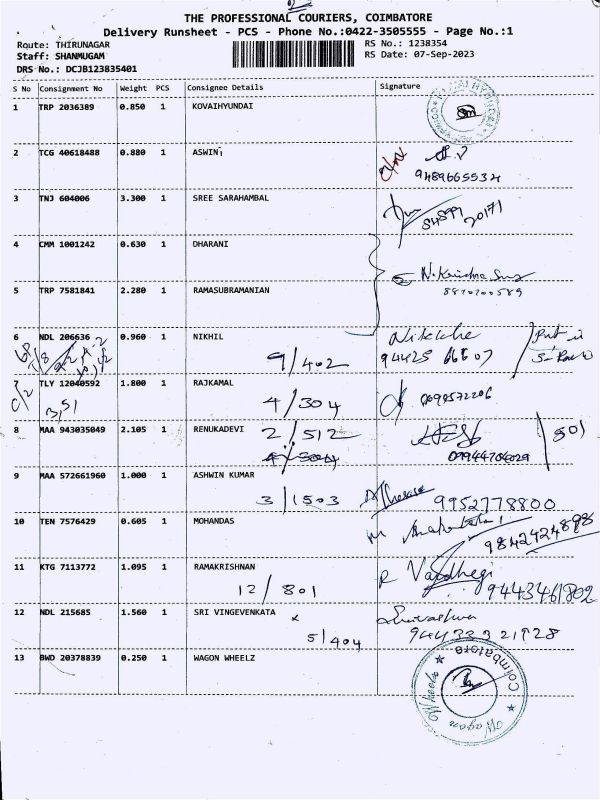 THE PROFESSIONAL COURIERS, COIMBATORE
Delivery Runsheet - PCS - Phone No.:0422-3505555 - Page No.:1
Route: THIRUNAGAR RS No.: 1238354
Staff: SHANMUGAM RS Date: 07-Sep-2023
DRS No.: DCJB123835401
S No Consignment No Weight PCS Consignee Details Signature
1 TRP 2036389 0.850 1 KOVAIHYUNDAI
2 TCG 40618488 0.880 1 ASWIN
9489665534
3 TNJ 604006 3.300 1 SREE SARAHAMBAL
20171
4 CMM 1001242 0.630 1 DHARANI
5 TRP 7581841 2.280 1 RAMASUBRAMANIAN
6 NDL 206636 0.960 1 NIKHIL
9/402 94425 66607
7 TLY 12040592 1.800 1 RAJKAMAL
4/304
8 MAA 943035049 2.105 1 RENUKADEVI 2/512 501
09944704029
9 MAA 572661960 1.000 1 ASHWIN KUMAR
3/1503 9952778800
10 TEN 7576429 0.605 1 MOHANDAS
9842424898
11 KTG 7113772 1.095 1 RAMAKRISHNAN
12/801 9443461802
12 NDL 215685 1.560 1 SRI VINGEVENKATA
5/404
13 BWD 20378839 0.250 1 WAGON WHEELZ
Wagon Wheelz Coimbatore